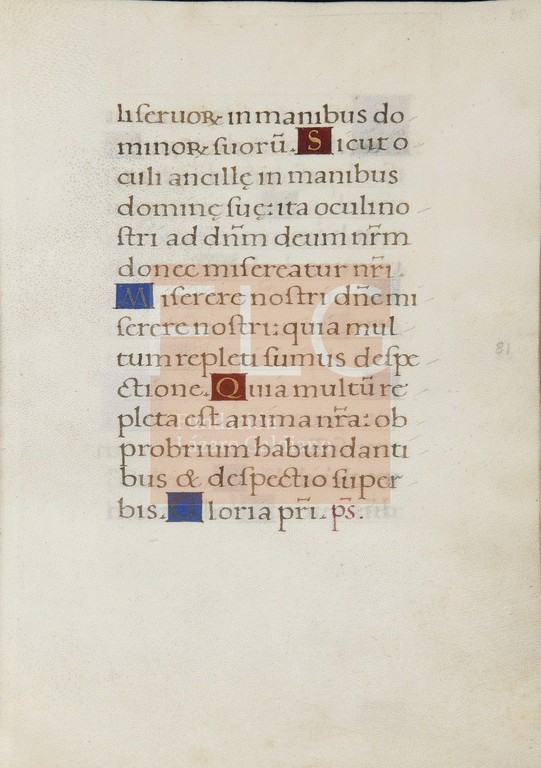 li seruoꝝ in manibus do
minoꝝ suorū. Sicut o
culi ancillę in manibus
dominę suę: ita oculi no
stri ad dn̄m deum nr̄m
donec misereatur nr̄i.
Miserere nostri dn̄e mi
serere nostri: quia mul
tum repleti sumus despe
ctione. Quia multū re
pleta est anima nr̄a: ob
probrium habundanti
bus & despectio super
bis. Gloria pr̄i. ps̄.
81
FLG